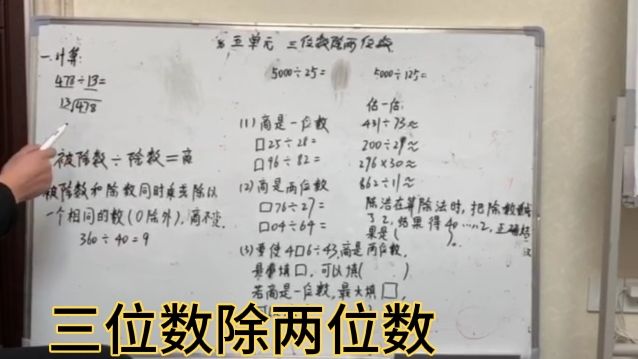 第五单元 三位数除两位数
一.计算:
478÷13=
13√478
被除数÷除数=商
被除数和除数同时乘或除以
一个相同的数(0除外),商不变.
360÷40=9
5000÷25=
5000÷125=
(1)商是一位数
□25÷28=
□96÷82=
(2)商是两位数
□76÷27=
□04÷64=
(3)要使4□6÷43,商是两位数,
最小填□,可以填( )
若商是一位数,最大填□,
估一估:
431÷73≈
200÷29≈
276×30≈
862÷11≈
陈浩在算除法时,把除数
了2,结果得40……2,正确结
果是( ).
三位数除两位数